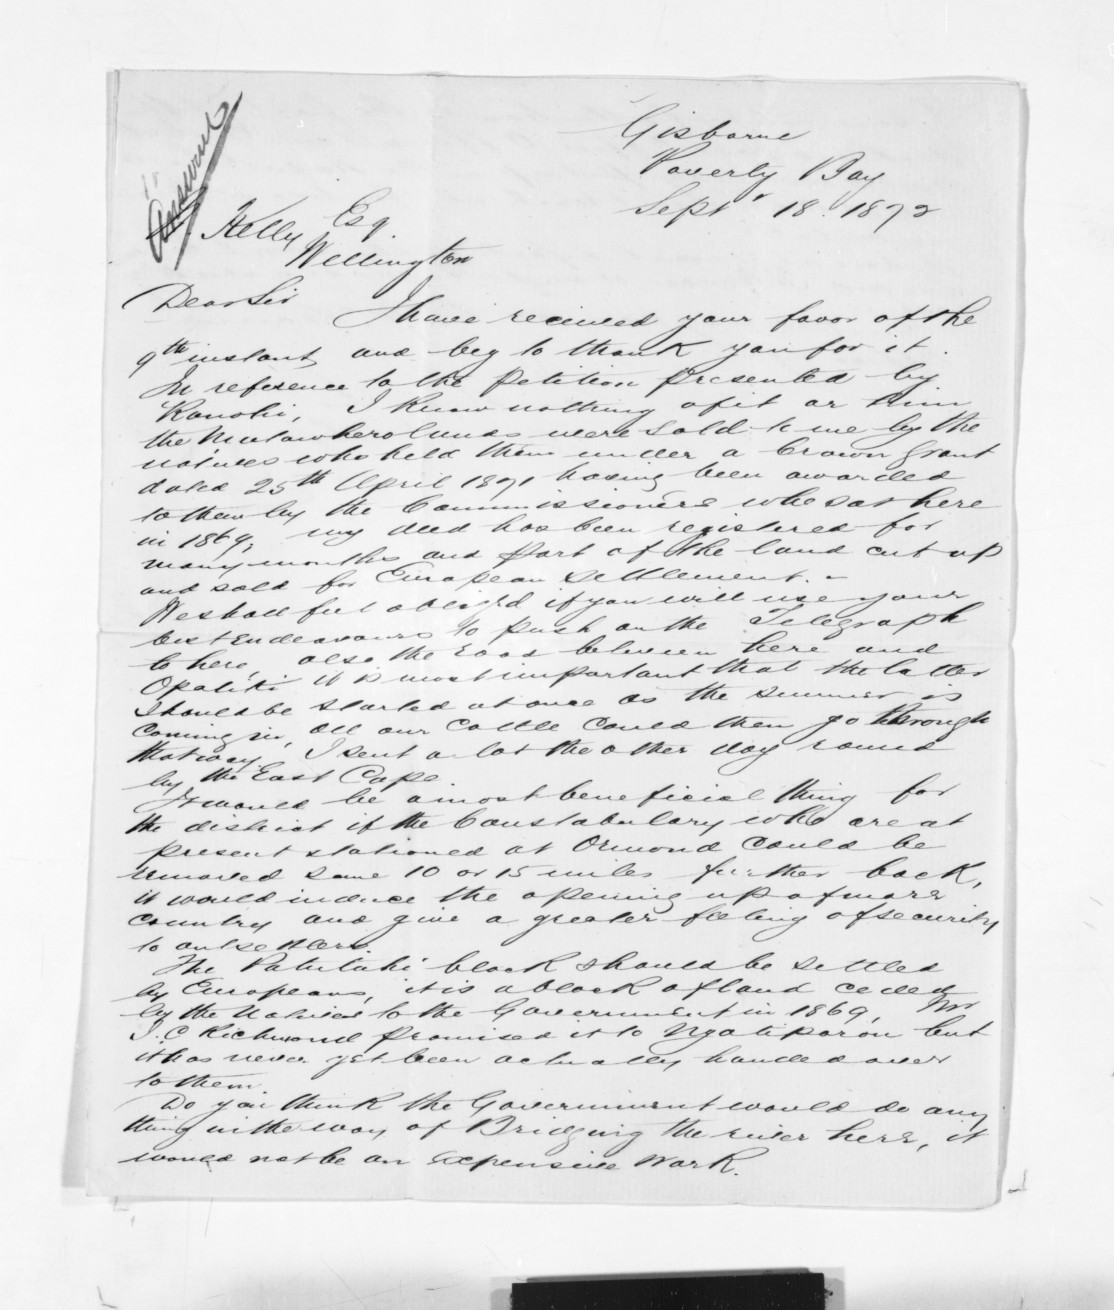 Answered
Gisborne
Poverty Bay
Septr 18. 1872
Kelly Esq.
Wellington
Dear Sir I have received your favor of the
9th instant, and beg to thank you for it.
In reference to the Petition presented by
I know nothing of it or him
the Matawhero lands were sold to me by the
natives who held them under a Crown Grant
dated 25th April 1871 having been awarded
to them by the Commissioners who sat here
in 1869, my deed has been registered for
many months and part of the land cut up
and sold for European settlement. -
We shall feel obliged if you will use your
best Endeavours to push on the Telegraph
to here, also the road between here and
Opotiki it is most important that the latter
should be started at once as the summer is
coming in, all our cattle could then go through
that way. I sent a lot the other day round
by the East Cape.
It would be a most beneficial thing for
the district if the Constabulary who are at
present stationed at Ormond could be
removed some 10 or 15 miles further back,
it would induce the opening up of more
country and give a greater feeling of security
to outsettlers.
The Patutahi block should be settled
by Europeans, it is a block of land ceded
by the Natives to the Government in 1869, Mr
J. C Richmond promised it to Ngatiporou but
it has never yet been actually handed over
to them.
Do you think the Government would do any
thing in the way of Bridging the river here, it
would not be an expensive work.